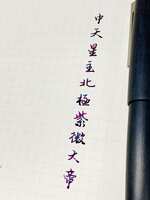 中天星主北極紫微大帝